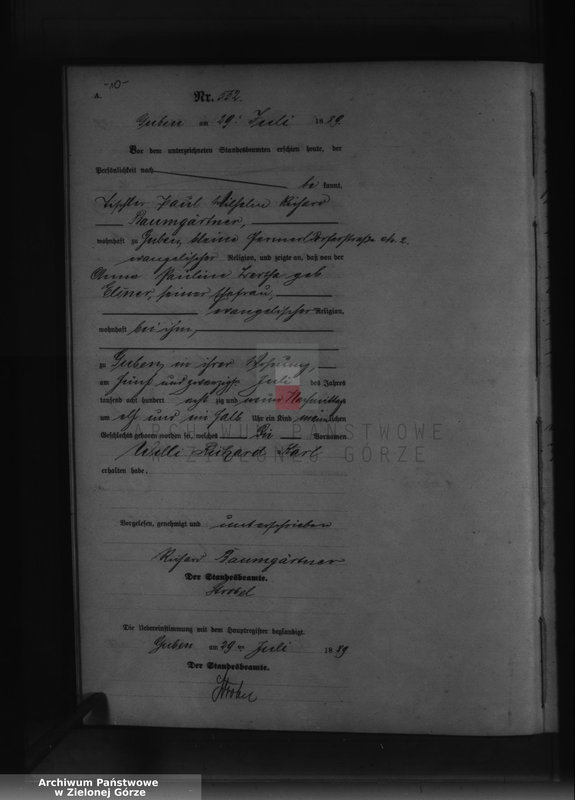 -10-
A.
Nr. 532.
Guben am 29. Juli 1889.
Vor dem unterzeichneten Standesbeamten erschien heute, der
Persönlichkeit nach
be kannt,
Tischler Paul Wilhelm Richard
Baumgärtner,
wohnhaft zu Guben, kleine straße No. 2.
evangelischer Religion, und zeigte an, daß von der
Anna Pauline Bertha geb.
seiner Ehefrau,
evangelischer Religion,
wohnhaft bei ihm,
zu Guben in ihrer Wohnung,
am fünf und zwanzigsten Juli des Jahres
tausend acht hundert acht zig und neun Nachmittags
um elf und ein halb Uhr ein Kind männlichen
Geschlechts geboren worden sei, welches die Vornamen
Willi Richard Karl
erhalten habe.
Vorgelesen, genehmigt und unterschrieben
Richard Baumgärtner
Der Standesbeamte.
Strobel
Die Uebereinstimmung mit dem Hauptregister beglaubigt.
Guben am 29ten Juli 1889
Der Standesbeamte.
Strobel
ARCHIWUM PAŃSTWOWE
W ZIELONEJ GÓRZE
Archiwum Państwowe
w Zielonej Górze